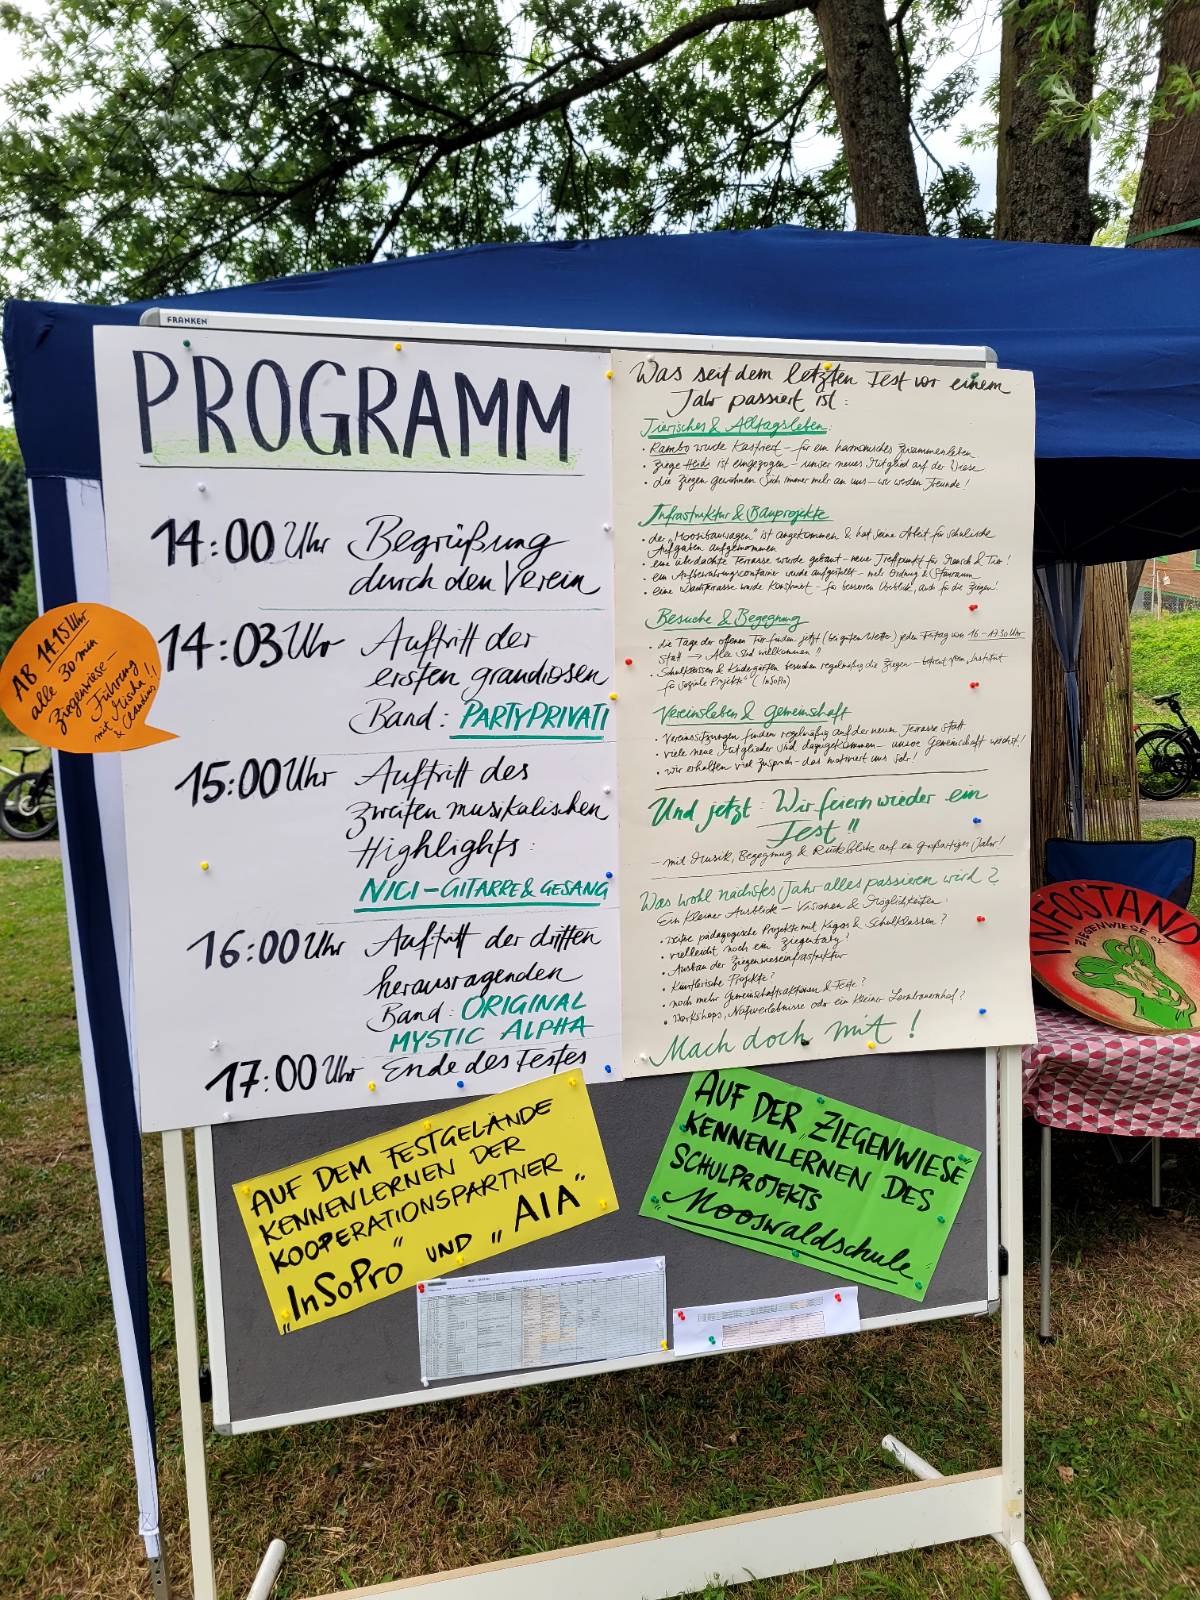 FRANKEN
PROGRAMM
14:00 Uhr Begrüßung
durch den Verein
14:03 Uhr Auftritt der
ersten grandiosen
Band: PARTYPRIVATI
15:00 Uhr Auftritt des
zweiten musikalischen
Highlights:
NICI-GITARRE & GESANG
16:00 Uhr Auftritt der dritten
herausragenden
Band: ORIGINAL
MYSTIC ALPHA
17:00 Uhr Ende des Festes
AB 14:15 Uhr
alle 30 min
Ziegenwiese-
Führung
mit Mischa
& Claudius!!
Was seit dem letzten Fest vor einem
Jahr passiert ist:
Tierisches & Alltagsleben:
• Rambo wurde kastriert – für ein harmonisches Zusammenleben
• Ziege Heidi ist eingezogen – unser neues Mitglied auf der Wiese
• die Ziegen gewöhnen sich immer mehr an uns – wir werden Freunde!
Infrastruktur & Bauprojekte
• der „Moosbauwagen" ist angekommen & hat seine Arbeit für
Aufgaben aufgenommen
• eine überdachte Terrasse wurde gebaut – neuer Treffpunkt für Mensch & Tier!
• ein Aufbewahrungscontainer wurde aufgestellt – mehr Ordnung & Stauraum
• eine wurde konstruiert – für besseren Überblick, auch für die Ziegen!
Besuche & Begegnung
• die Tage der offenen Tür finden jetzt (bei gutem Wetter) jeden Freitag von 16 - 17.30 Uhr
statt → Alle sind willkommen!!
• Schulklassen & Kindergärten besuchen regelmäßig die Ziegen – betreut vom „Institut
für soziale Projekte" (InSoPro)
Vereinsleben & Gemeinschaft
• Vereinssitzungen finden regelmäßig auf der neuen Terrasse statt
• viele neue Mitglieder sind dazugekommen – unsere Gemeinschaft wächst!
• wir erhalten viel Zuspruch – das motiviert uns sehr!
Und jetzt: Wir feiern wieder ein
Fest!!
– mit Musik, Begegnung & Rückblick auf ein großartiges Jahr!
Was wohl nächstes Jahr alles passieren wird?
Ein kleiner Ausblick – Visionen & Möglichkeiten:
• pädagogische Projekte mit Kigas & Schulklassen?
• vielleicht noch ein Ziegenbaby?
• Ausbau der Ziegenwieseinfrastruktur
• Künstlerische Projekte?
• noch mehr Gemeinschaftsaktionen & Feste?
• Workshops, Naturerlebnisse oder ein kleiner Lernbauernhof?
Mach doch mit!
INFOSTAND
ZIEGENWIESE e.V.
AUF DEM FESTGELÄNDE
KENNENLERNEN DER
KOOPERATIONSPARTNER
„InSoPro" UND „AIA"
AUF DER ZIEGENWIESE
KENNENLERNEN DES
SCHULPROJEKTS
Mooswaldschule